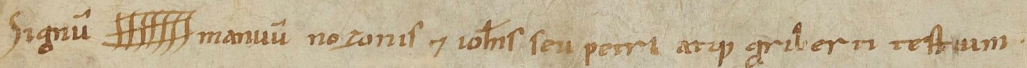 Signū manuū nozonis ⁊ ioh̅is seu petri atq; griberti testium.